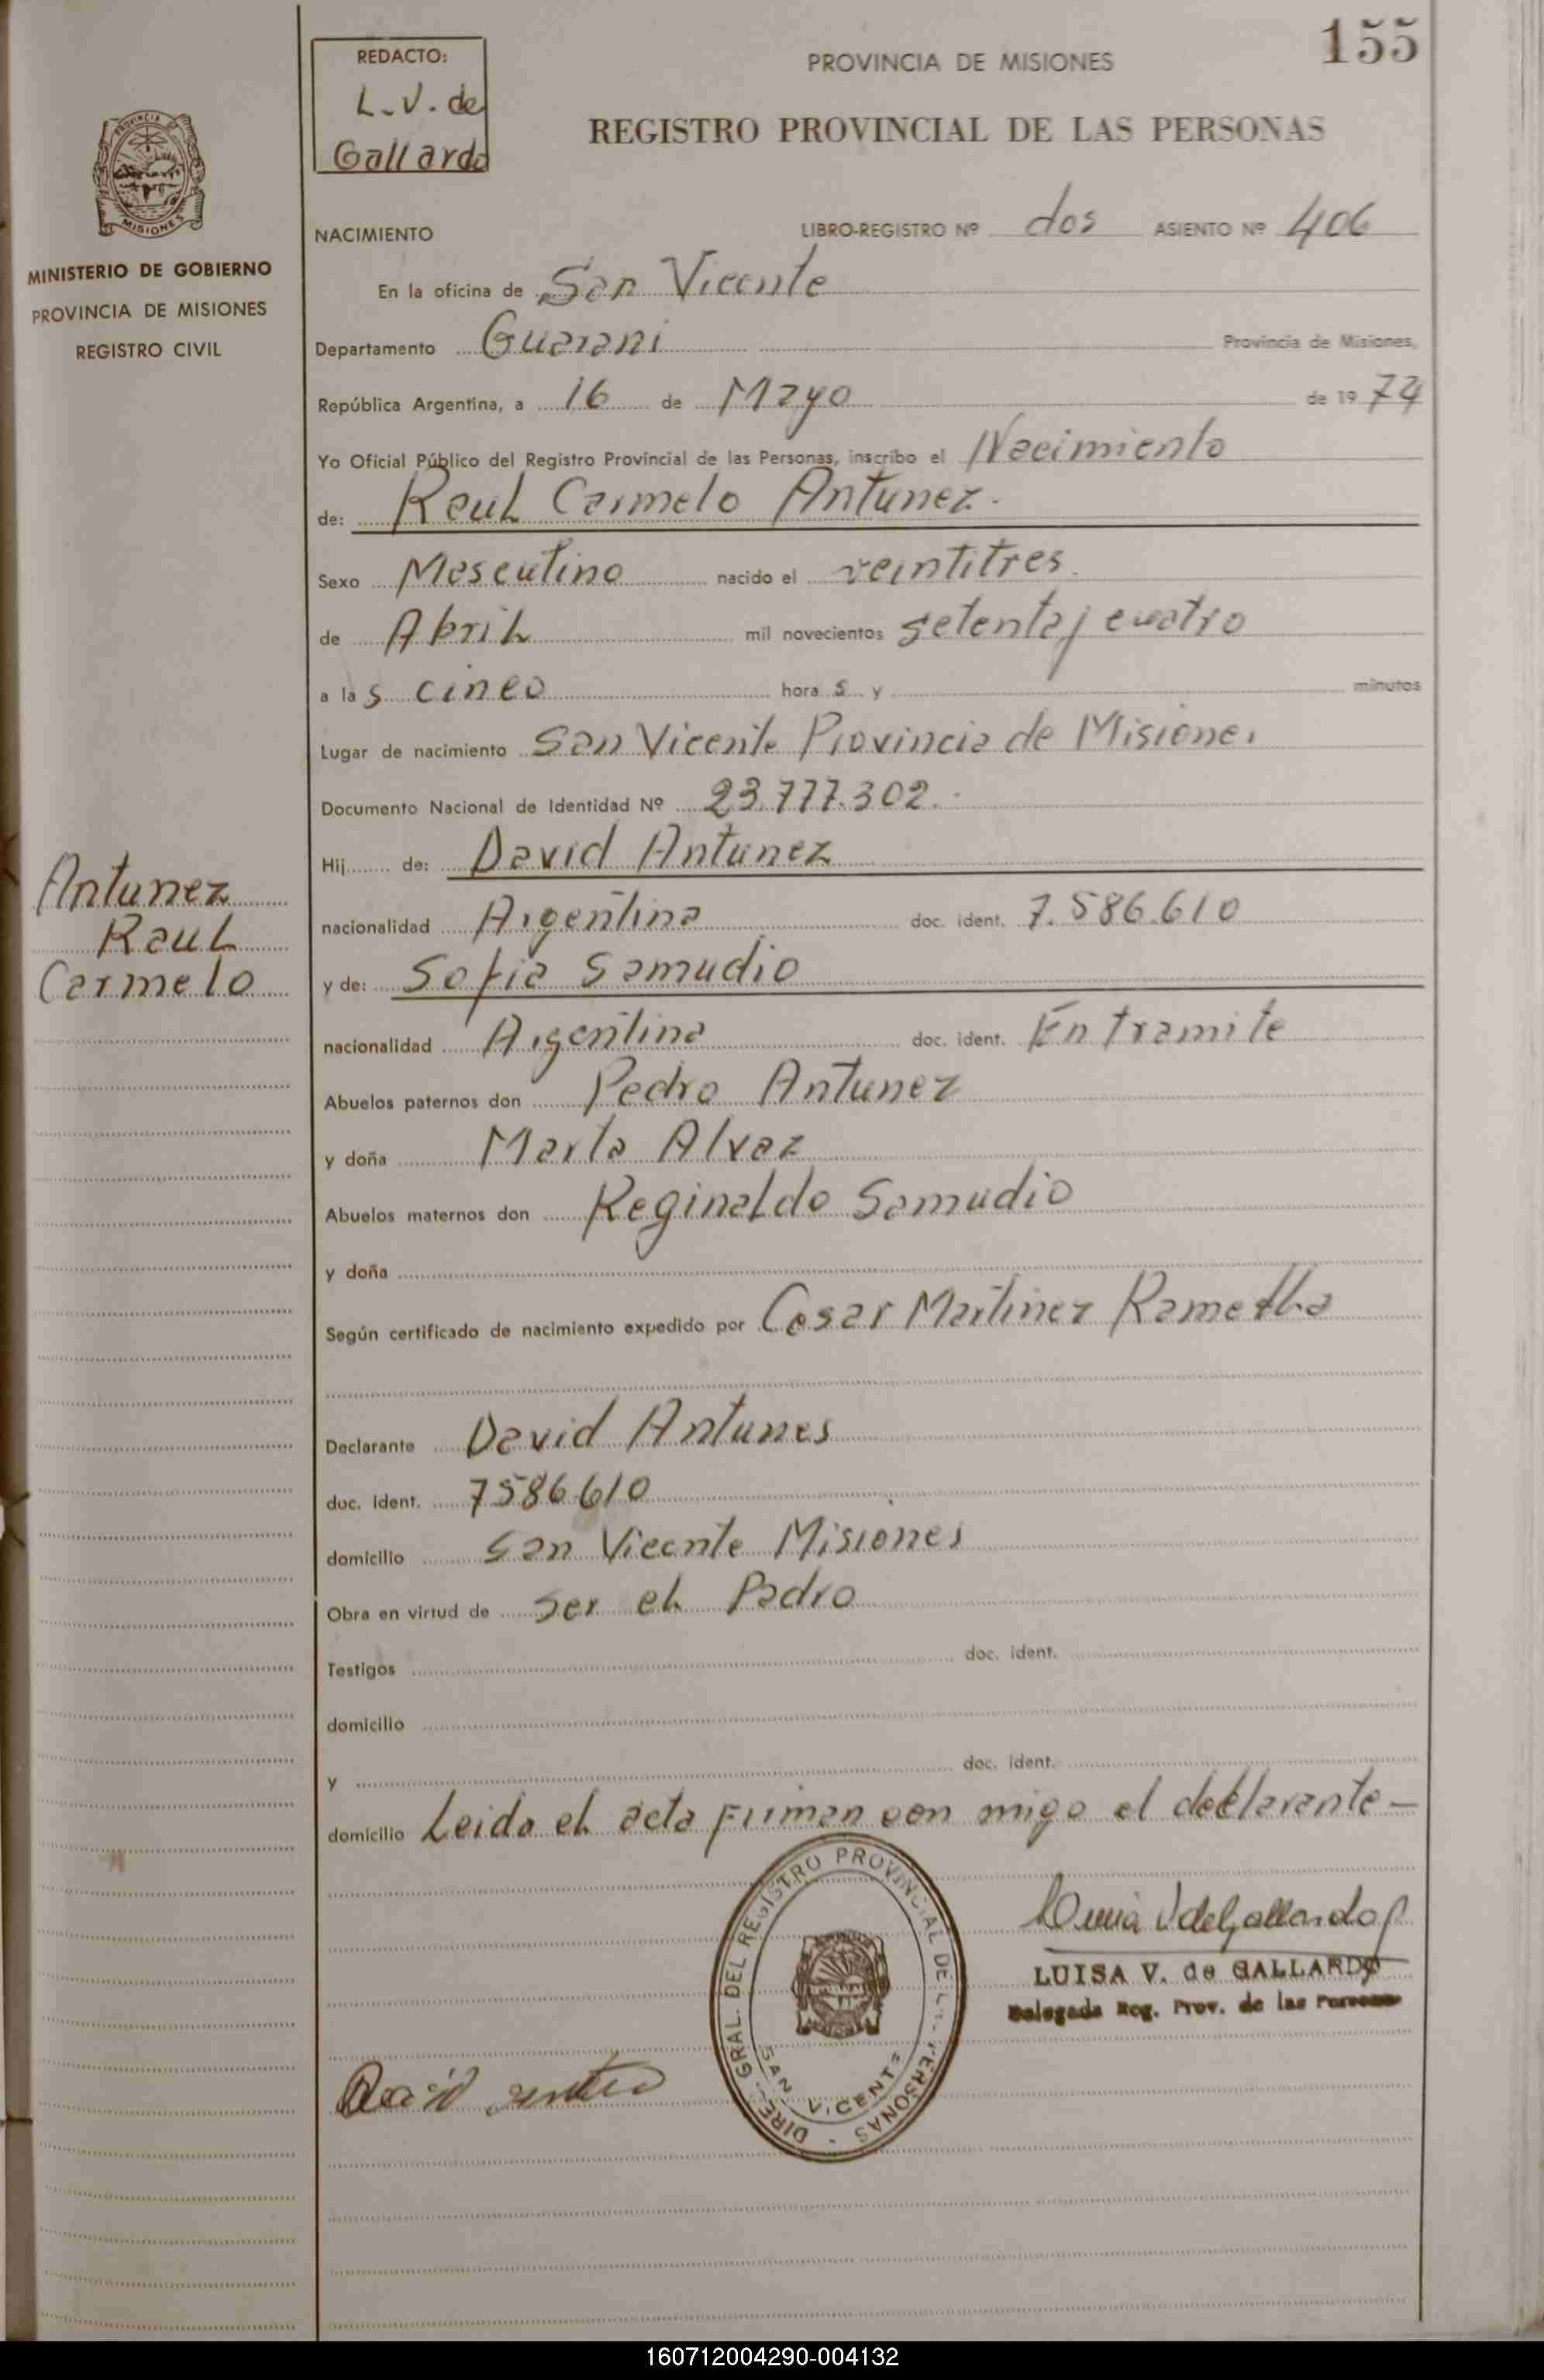 155
REDACTO:
L.V. de
Gallardo
PROVINCIA DE MISIONES
REGISTRO PROVINCIAL DE LAS PERSONAS
PROVINCIA DE
MISIONES
MINISTERIO DE GOBIERNO
PROVINCIA DE MISIONES
REGISTRO CIVIL
NACIMIENTO LIBRO-REGISTRO Nº dos ASIENTO Nº 406
En la oficina de San Vicente
Departamento Guarani Provincia de Misiones,
República Argentina, a 16 de Mayo de 1974
Yo Oficial Público del Registro Provincial de las Personas, inscribo el Nacimiento
de: Raul Carmelo Antunez.
Sexo Masculino nacido el veintitres
de Abril mil novecientos setenta y cuatro
a las cinco horas y minutos
Lugar de nacimiento San Vicente Provincia de Misiones
Documento Nacional de Identidad Nº 23.777.302.
Hij de: David Antunez
Antunez
Raul
Carmelo
nacionalidad Argentina doc. ident. 7.586.610
y de: Sofia Samudio
nacionalidad Argentina doc. ident. En tramite
Abuelos paternos don Pedro Antunez
y doña Marta Alvaz
Abuelos maternos don Reginaldo Samudio
y doña
Según certificado de nacimiento expedido por Cesar Martinez
Declarante David Antunes
doc. ident. 7586610
domicilio San Vicente Misiones
Obra en virtud de ser el Padro
Testigos doc. ident.
domicilio
y doc. ident.
domicilio Leida el acta Firman con migo el declarante —
DIREC. GRAL. DEL REGISTRO PROVINCIAL DE LAS PERSONAS -
SAN VICENTE
LUISA V. de GALLARDO
Delegada Reg. Prov. de las Personas
160712004290-004132